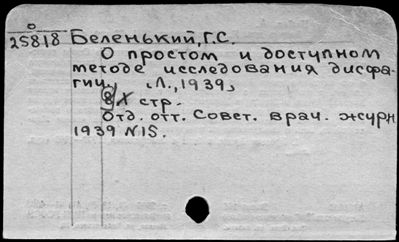 25818 Беленький, Г.С.
О простом и доступном
методе исследования дисфа-
гии. Л., 1939,
8 стр.
Отд. отт. Совет. врач. журн
1939 N15.